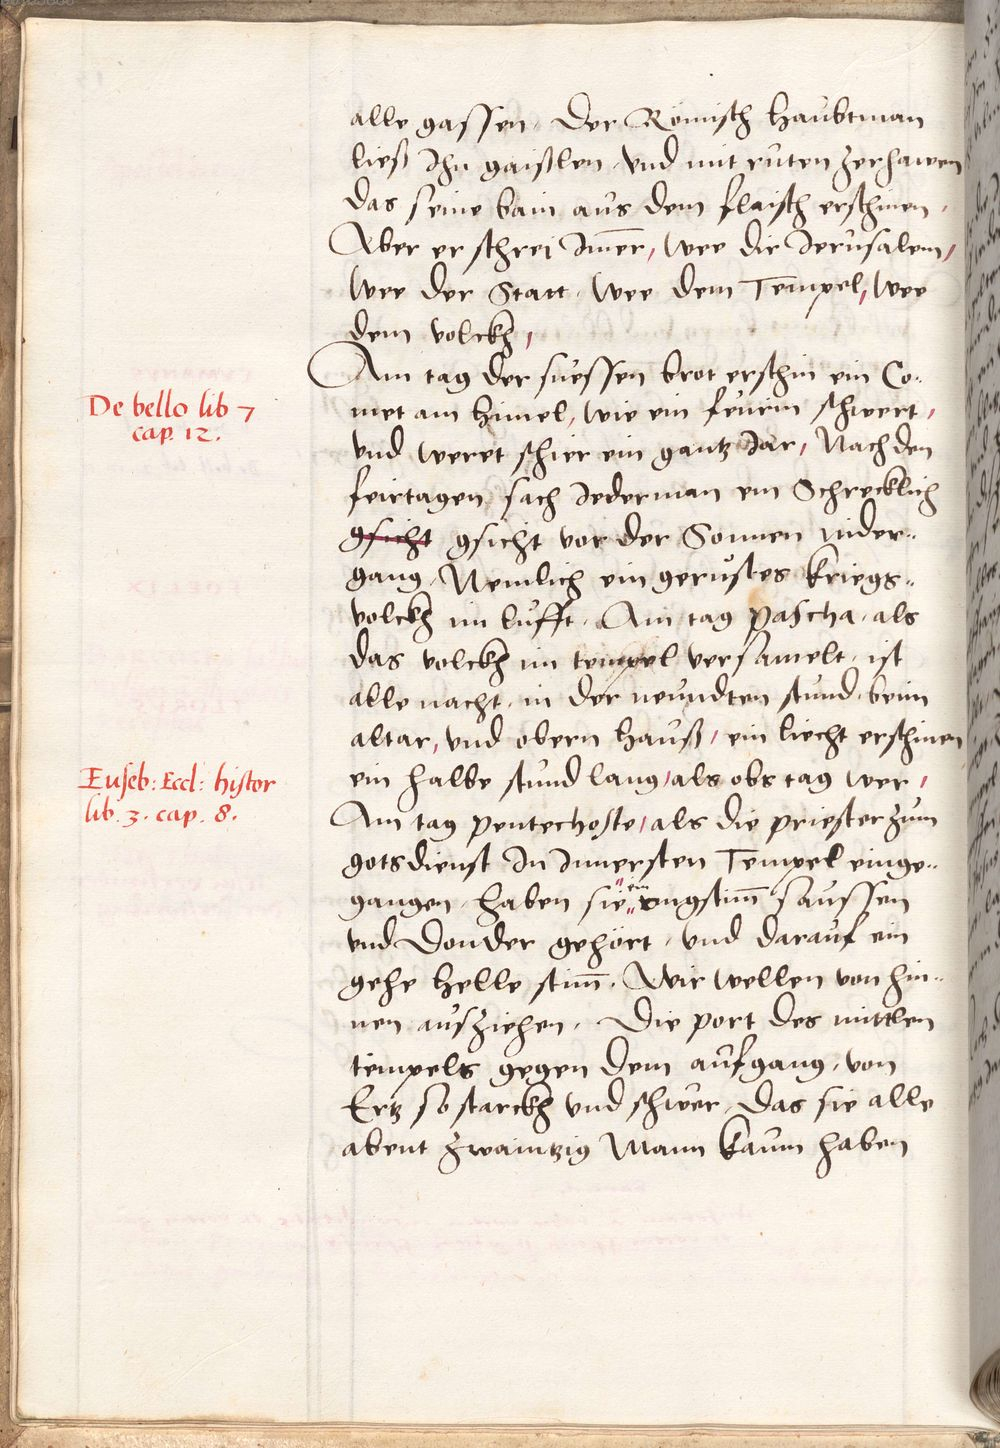 alle gassen. Der Römisch haubtman
ließ Ihn gaißlen, vnd mit ruten zerhawen
das seine bain aus dem flaisch erschinen,
Aber er schrei Im̄er, Wee dir Ierusalem,
Wee der Statt. Wee dem Tempel, Wee
dem volckh,
Am tag der suessen brot erschin ein Co-
De bello lib 7
cap. 12.
met am himel, Wie ein feurin schwert,
vnd weret schier ein gantz Iar, Nach den
feirtagen, sach Iederman ein Schrecklich
gsicht gsicht vor der Sonnen nider-
gang, Nemlich ein gerustes kriegs-
volckh im lufft. Am tag Pascha, als
das volckh im tempel versamelt, ist
alle nacht, in der neundten stund, beim
altar, vnd obern hauß, ein liecht erschinen
Euseb: Eccl: histor
lib. 3. cap. 8.
ein halbe stund lang, als obs tag wer,
Am tag Pentechoste, als die priester zum
gotsdienst In Innersten Tempel einge-
gangen, haben sie ein vngstim̄ saussen
vnd Donder gehört, vnd darauf ein
gehe helle stim̄. Wir wellen von hin-
nen ausziehen. Die port des mittlen
tempels gegen dem aufgang, von
Ertz so starckh vnd schwer, Das sie alle
abent zwaintzig Mann kaum haben